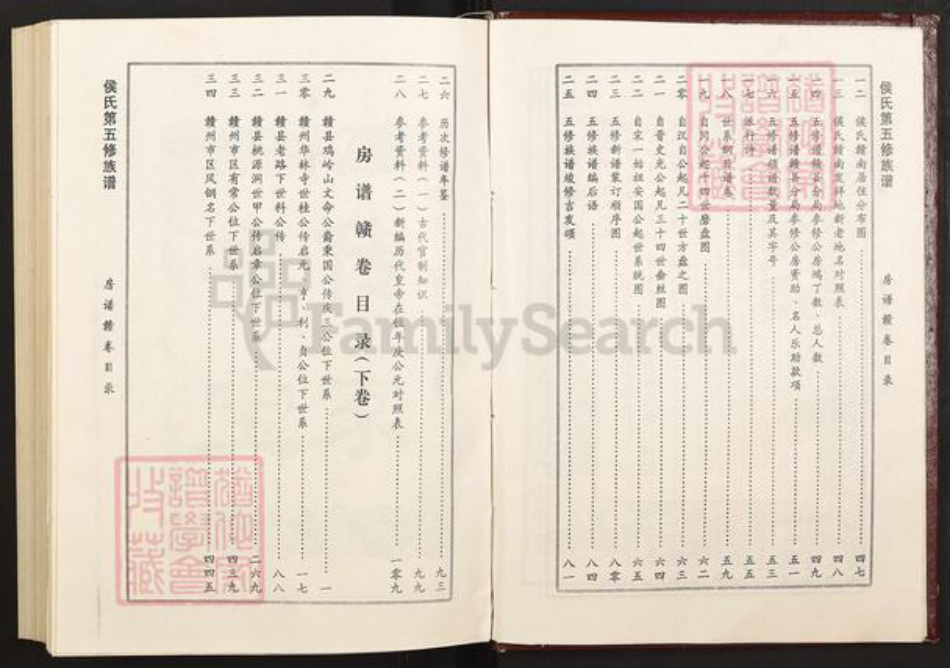 侯氏第五修族谱
房谱赣卷目录
一二 侯氏赣南居住分布图 四七
一三 侯氏赣南发祥地新老地名对照表 四八
一四 五修谱赣县分局参修公房鸿丁数、总人数 四九
一五 五修谱赣县分局参修公房资助、名人乐助款项 五一
一六 五修谱领谱数量及其字号 五三
一七 派行诗 五五
一八 世系 五九
一九 六二
二零 自汉自公起凡二十世方盘之图 六三
二一 自晋史光公起凡三十四世垂丝图 六四
二二 自宋一始祖安国公起世系统图 六五
二三 五修新谱装订顺序图 八零
二四 五修族谱编后语 八四
二五 五修族谱竣修吉发颂 八一
二六 历次修谱年鉴 九三
二七 参考资料（一）古代官制知识 九九
二八 参考资料（二）新编历代皇帝在位年次公元对照表 一零九
房谱赣卷目录（下卷）
二九 赣县瑞岭山文命公裔秉国公传庆三公位下世系 一
三零 赣州华林寺世桂公传启元、亨、利、贞公位下世系 一七
三一 赣县老路下世科公传 八八
三二 赣县桃源洞世甲公传启章公位下世系 二六九
三三 赣州市区有常公位下世系 四三九
三四 赣州市区凤钢名下世系 四四五
侯氏第五修族谱
房谱赣卷目录
FamilySearch